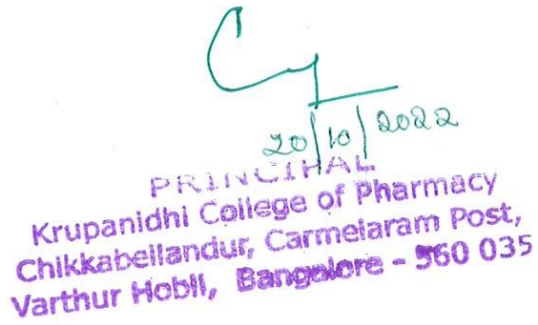 20/10/2022
PRINCIPAL
Krupanidhi College of Pharmacy
Chikkabellandur, Carmelaram Post,
Varthur Hobli, Bangalore - 560 035